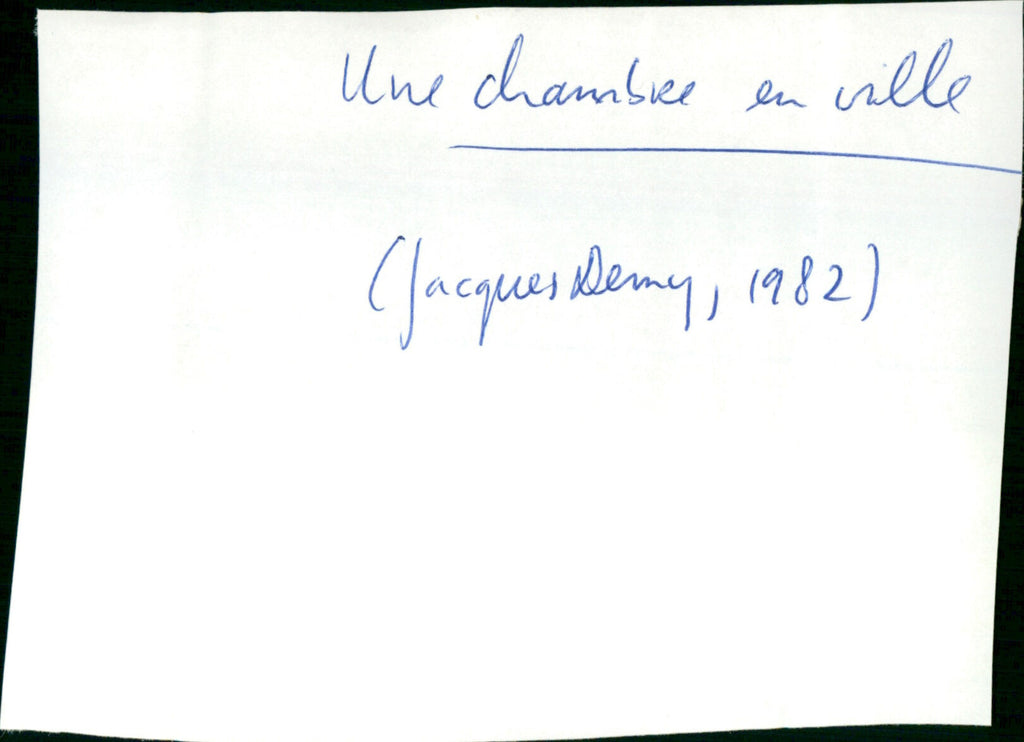 Une chambre en ville
(Jacques Demy, 1982)